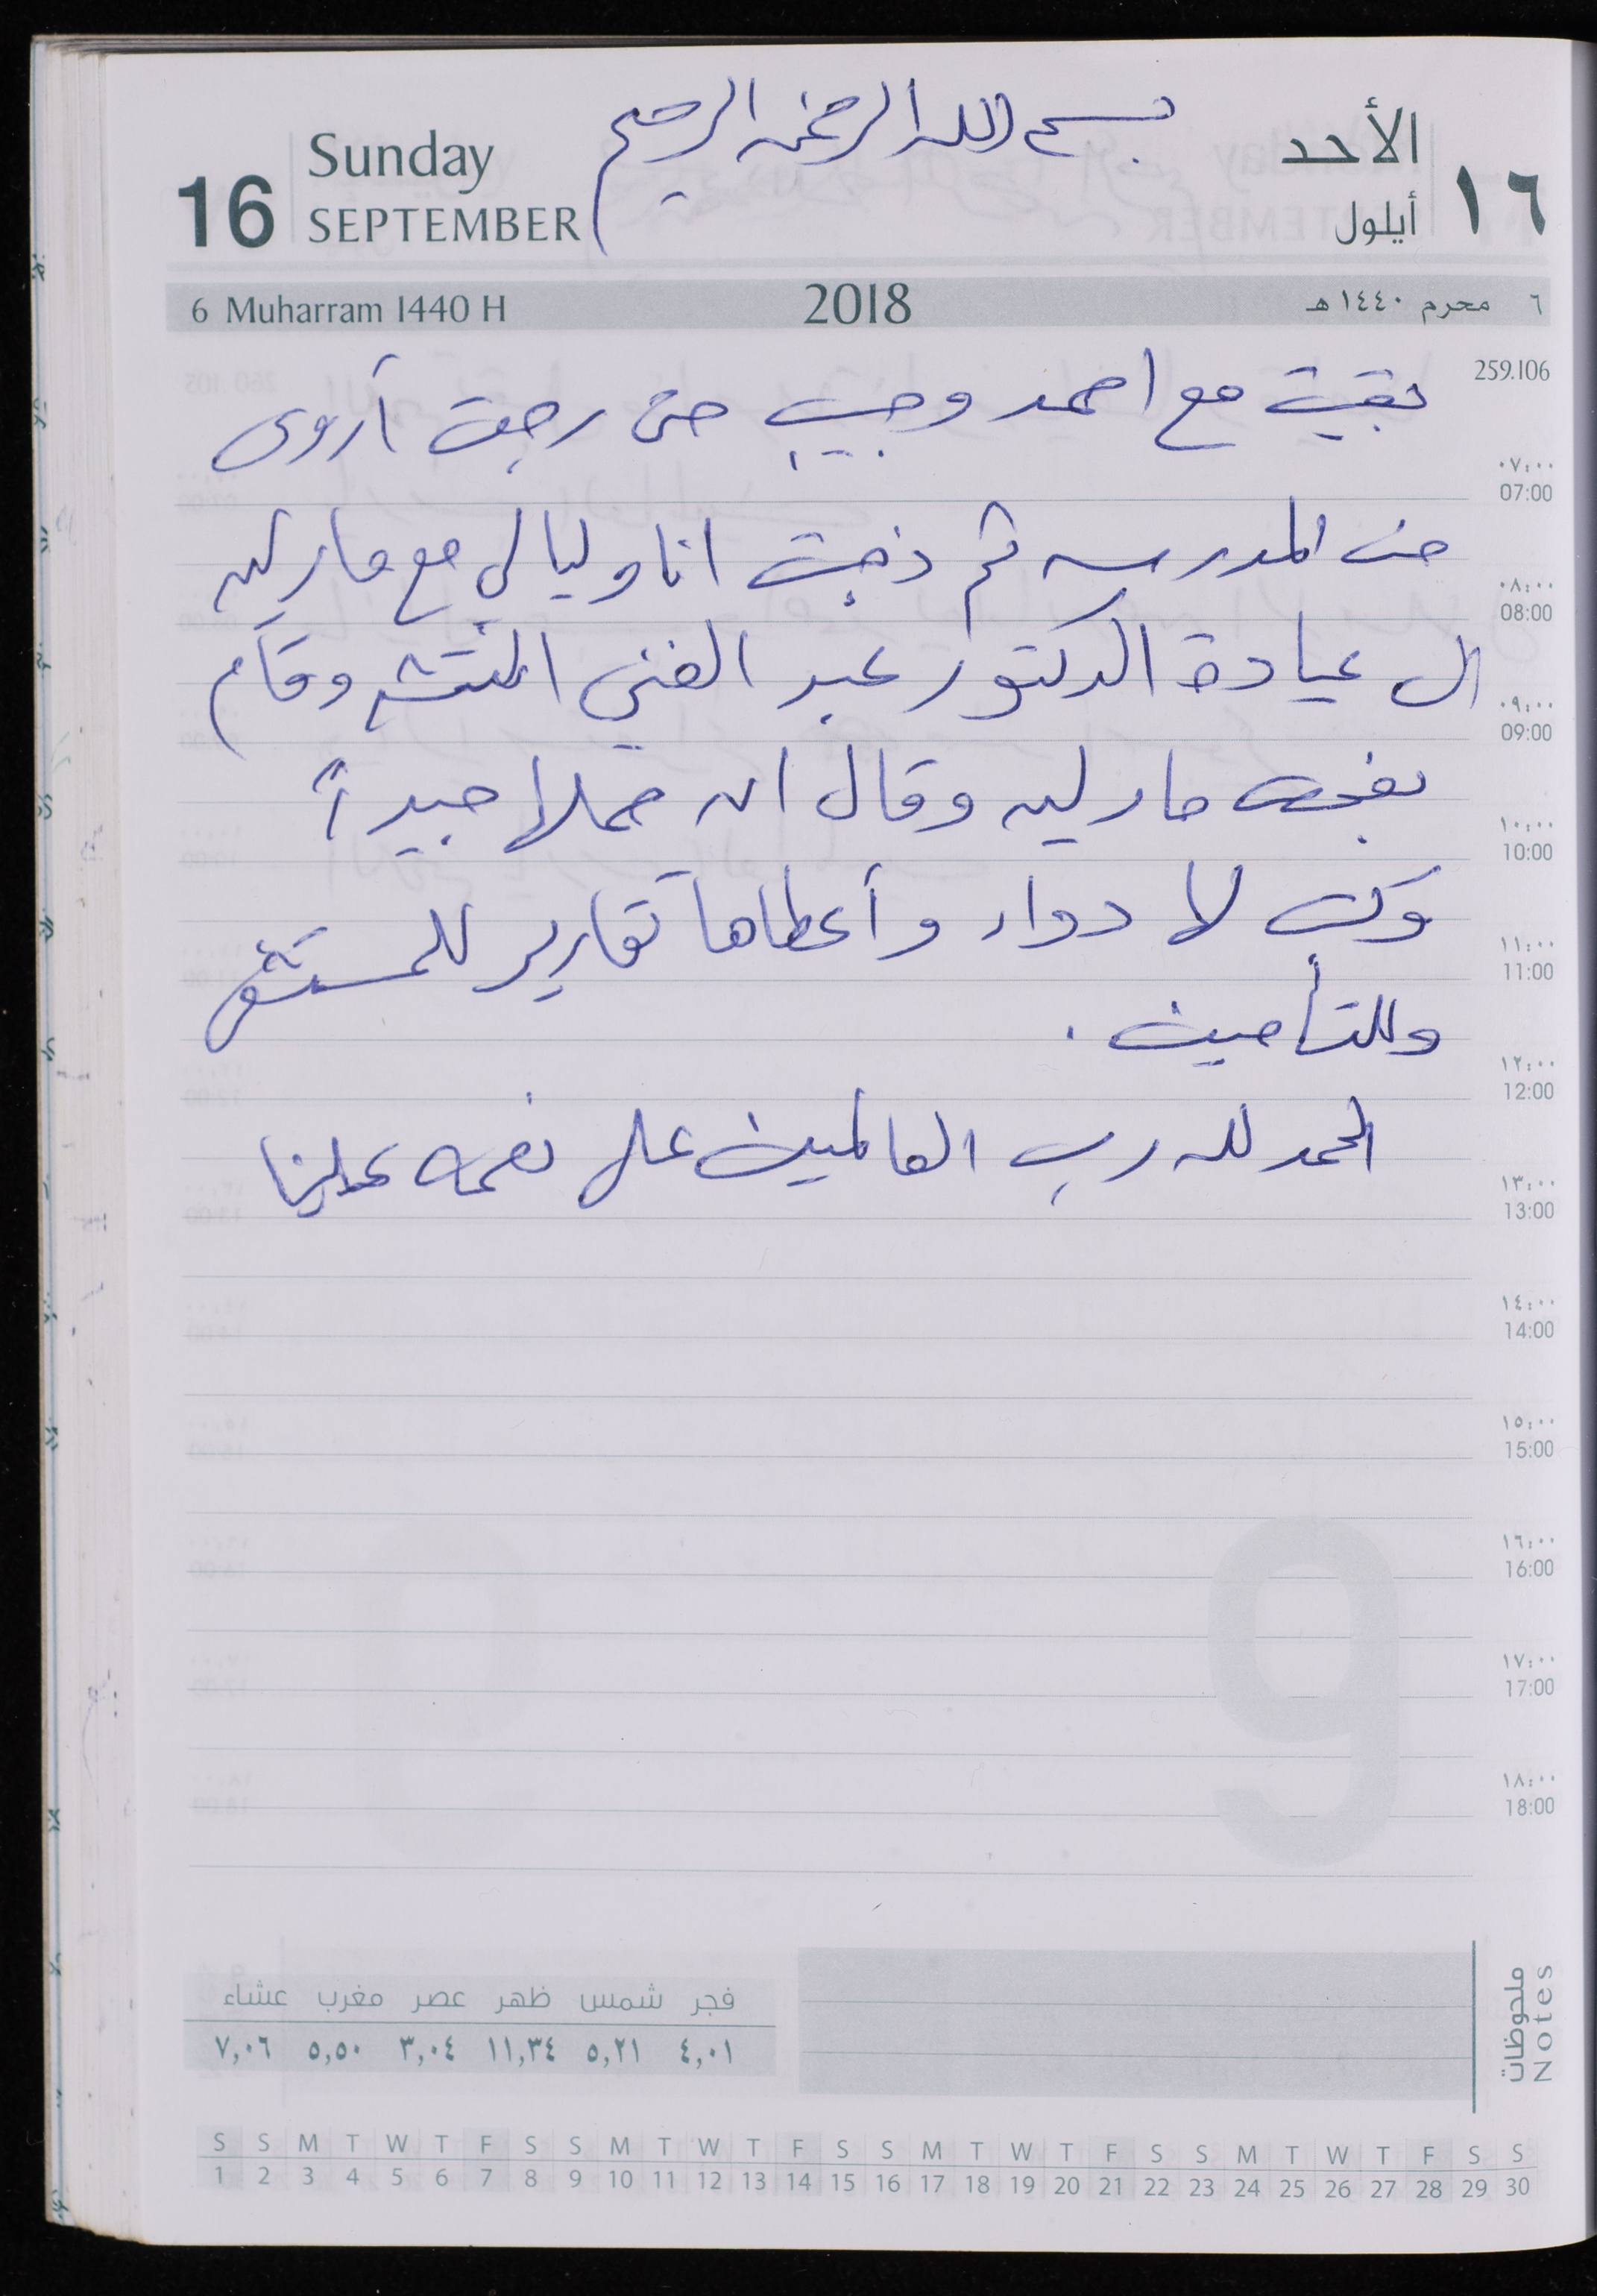 بسم الله الرحمن الرحيم
Sunday الأحد
16 SEPTEMBER أيلول ١٦
6 Muharram 1440 H 2018 ٦ محرم ١٤٤٠ هـ
259.106
بقيت مع احمد وحبيب حتى رجعت أروى
٠٧:٠٠
07:00
من المدرسه ثم ذهبت انا وليالي مع مارلين
٠٨:٠٠
08:00
الى عيادة الدكتور عبد الغني وقام
٠٩:٠٠
09:00
بفحص مارلين وقال ان حملها جيداً
١٠:٠٠
10:00
وكتب لها دواء وأعطاها تقارير للمستشفى
١١:٠٠
11:00
وللتأمين .
١٢:٠٠
12:00
الحمد لله رب العالمين على نعمه علينا
١٣:٠٠
13:00
١٤:٠٠
14:00
١٥:٠٠
15:00
١٦:٠٠
16:00
١٧:٠٠
17:00
١٨:٠٠
18:00
9
ملحوظات
Notes
فجر شمس ظهر عصر مغرب عشاء
٤,٠١ ٥,٢١ ١١,٣٤ ٣,٠٤ ٥,٥٠ ٧,٠٦
S S M T W T F S S M T W T F S S M T W T F S S M T W T F S S
1 2 3 4 5 6 7 8 9 10 11 12 13 14 15 16 17 18 19 20 21 22 23 24 25 26 27 28 29 30